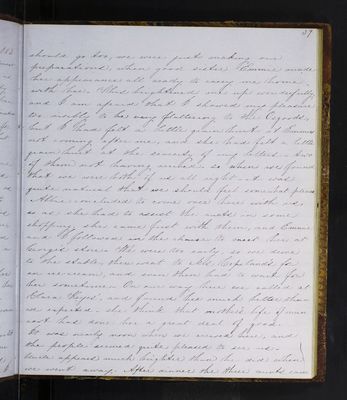 37
should go too, we were just making our
preparations, when your sister Emma made
her appearance all ready to carry me home
with her. This brightened me up wonderfully
and I am afraid that I showed my pleasure
too much to be very flattering to the Osgoods
but I had felt a little grieved that Emma
not coming after me, and she had felt a little
grieved at the of my letter. two
of them not having reached her. when we found
that we were both of us all right it was
quite natural that we should feel somewhat pleased
Allie concluded to come over here with us,
so as she had to assist the aunts in some
shopping, she came first with them, and Emma
and I followed in the to meet her at
George's store. We were too early so we drove
to the stable, then went to Mr. Copeland's for
an ice cream, and even then had to wait for
her sometime. On our way here we called at
Clara Keyes', and found her much better than
we expected. she thinks that mother's
root had done her a great deal of good.
It was nearly noon when we reached here, and
the people seemed quite pleased to see me.
appeared much brighter than he did when
we went away. After dinner the three aunts came